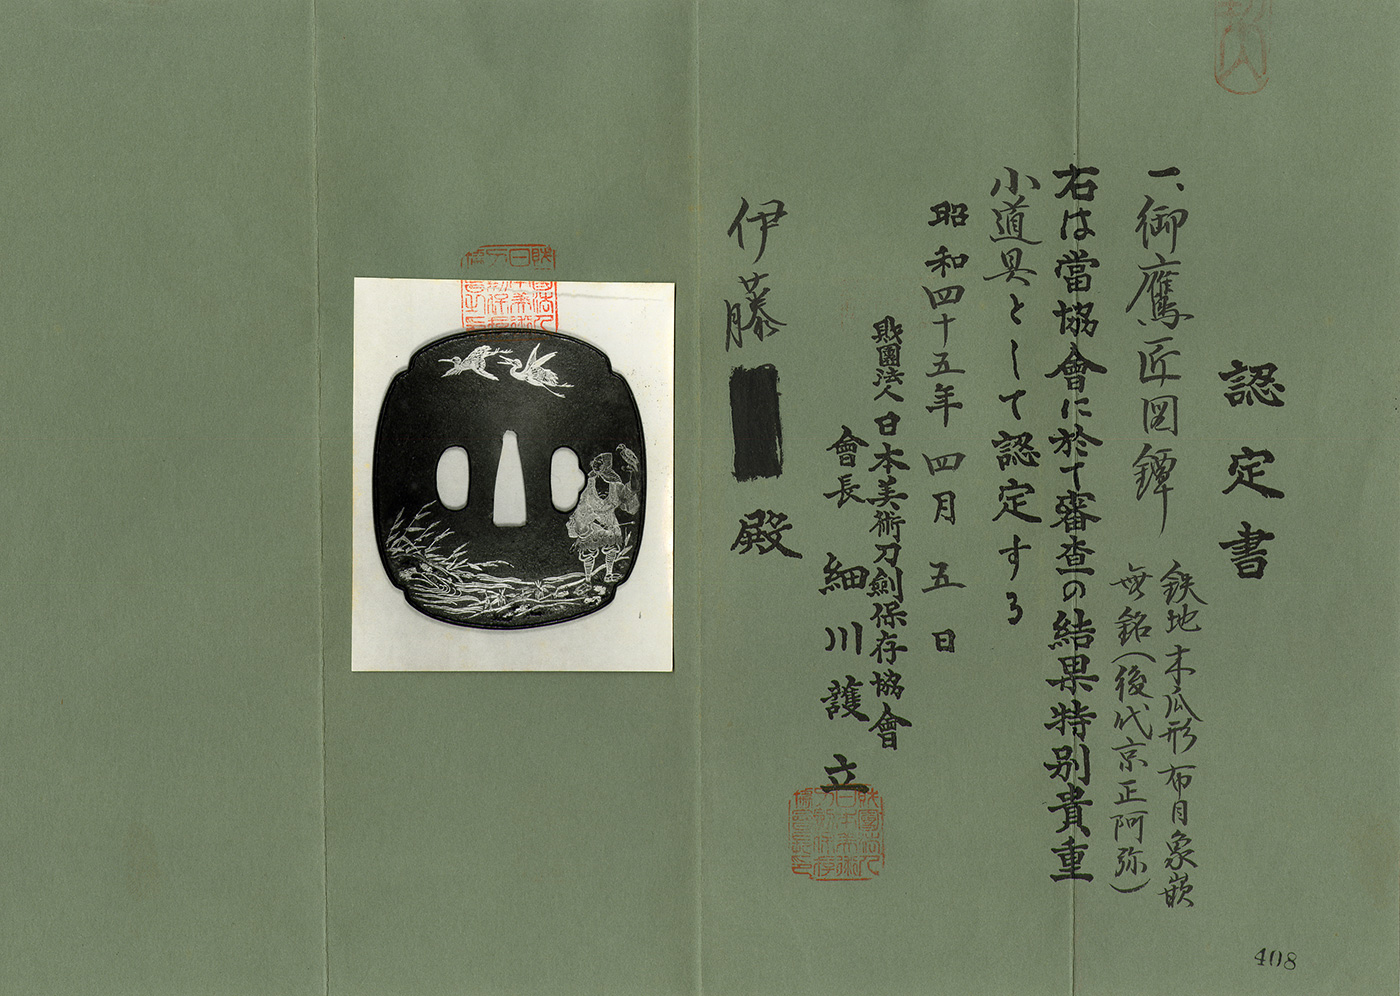 認定書
一、御鷹匠図鐔
鉄地木瓜形布目象嵌
無銘(後代京正阿弥)
右は當協會に於て審査の結果特別貴重
小道具として認定する
昭和四十五年四月五日
財團法人日本美術刀劍保存協會
會長 細川護立
伊藤 殿
408